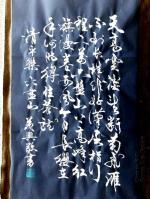 天高雲淡望斷南飛雁
不到長城非好漢屈指行
程二万六盤山上高峰紅
旗漫卷西風今日長纓在
手何時縛住蒼龍
清平樂六盤山